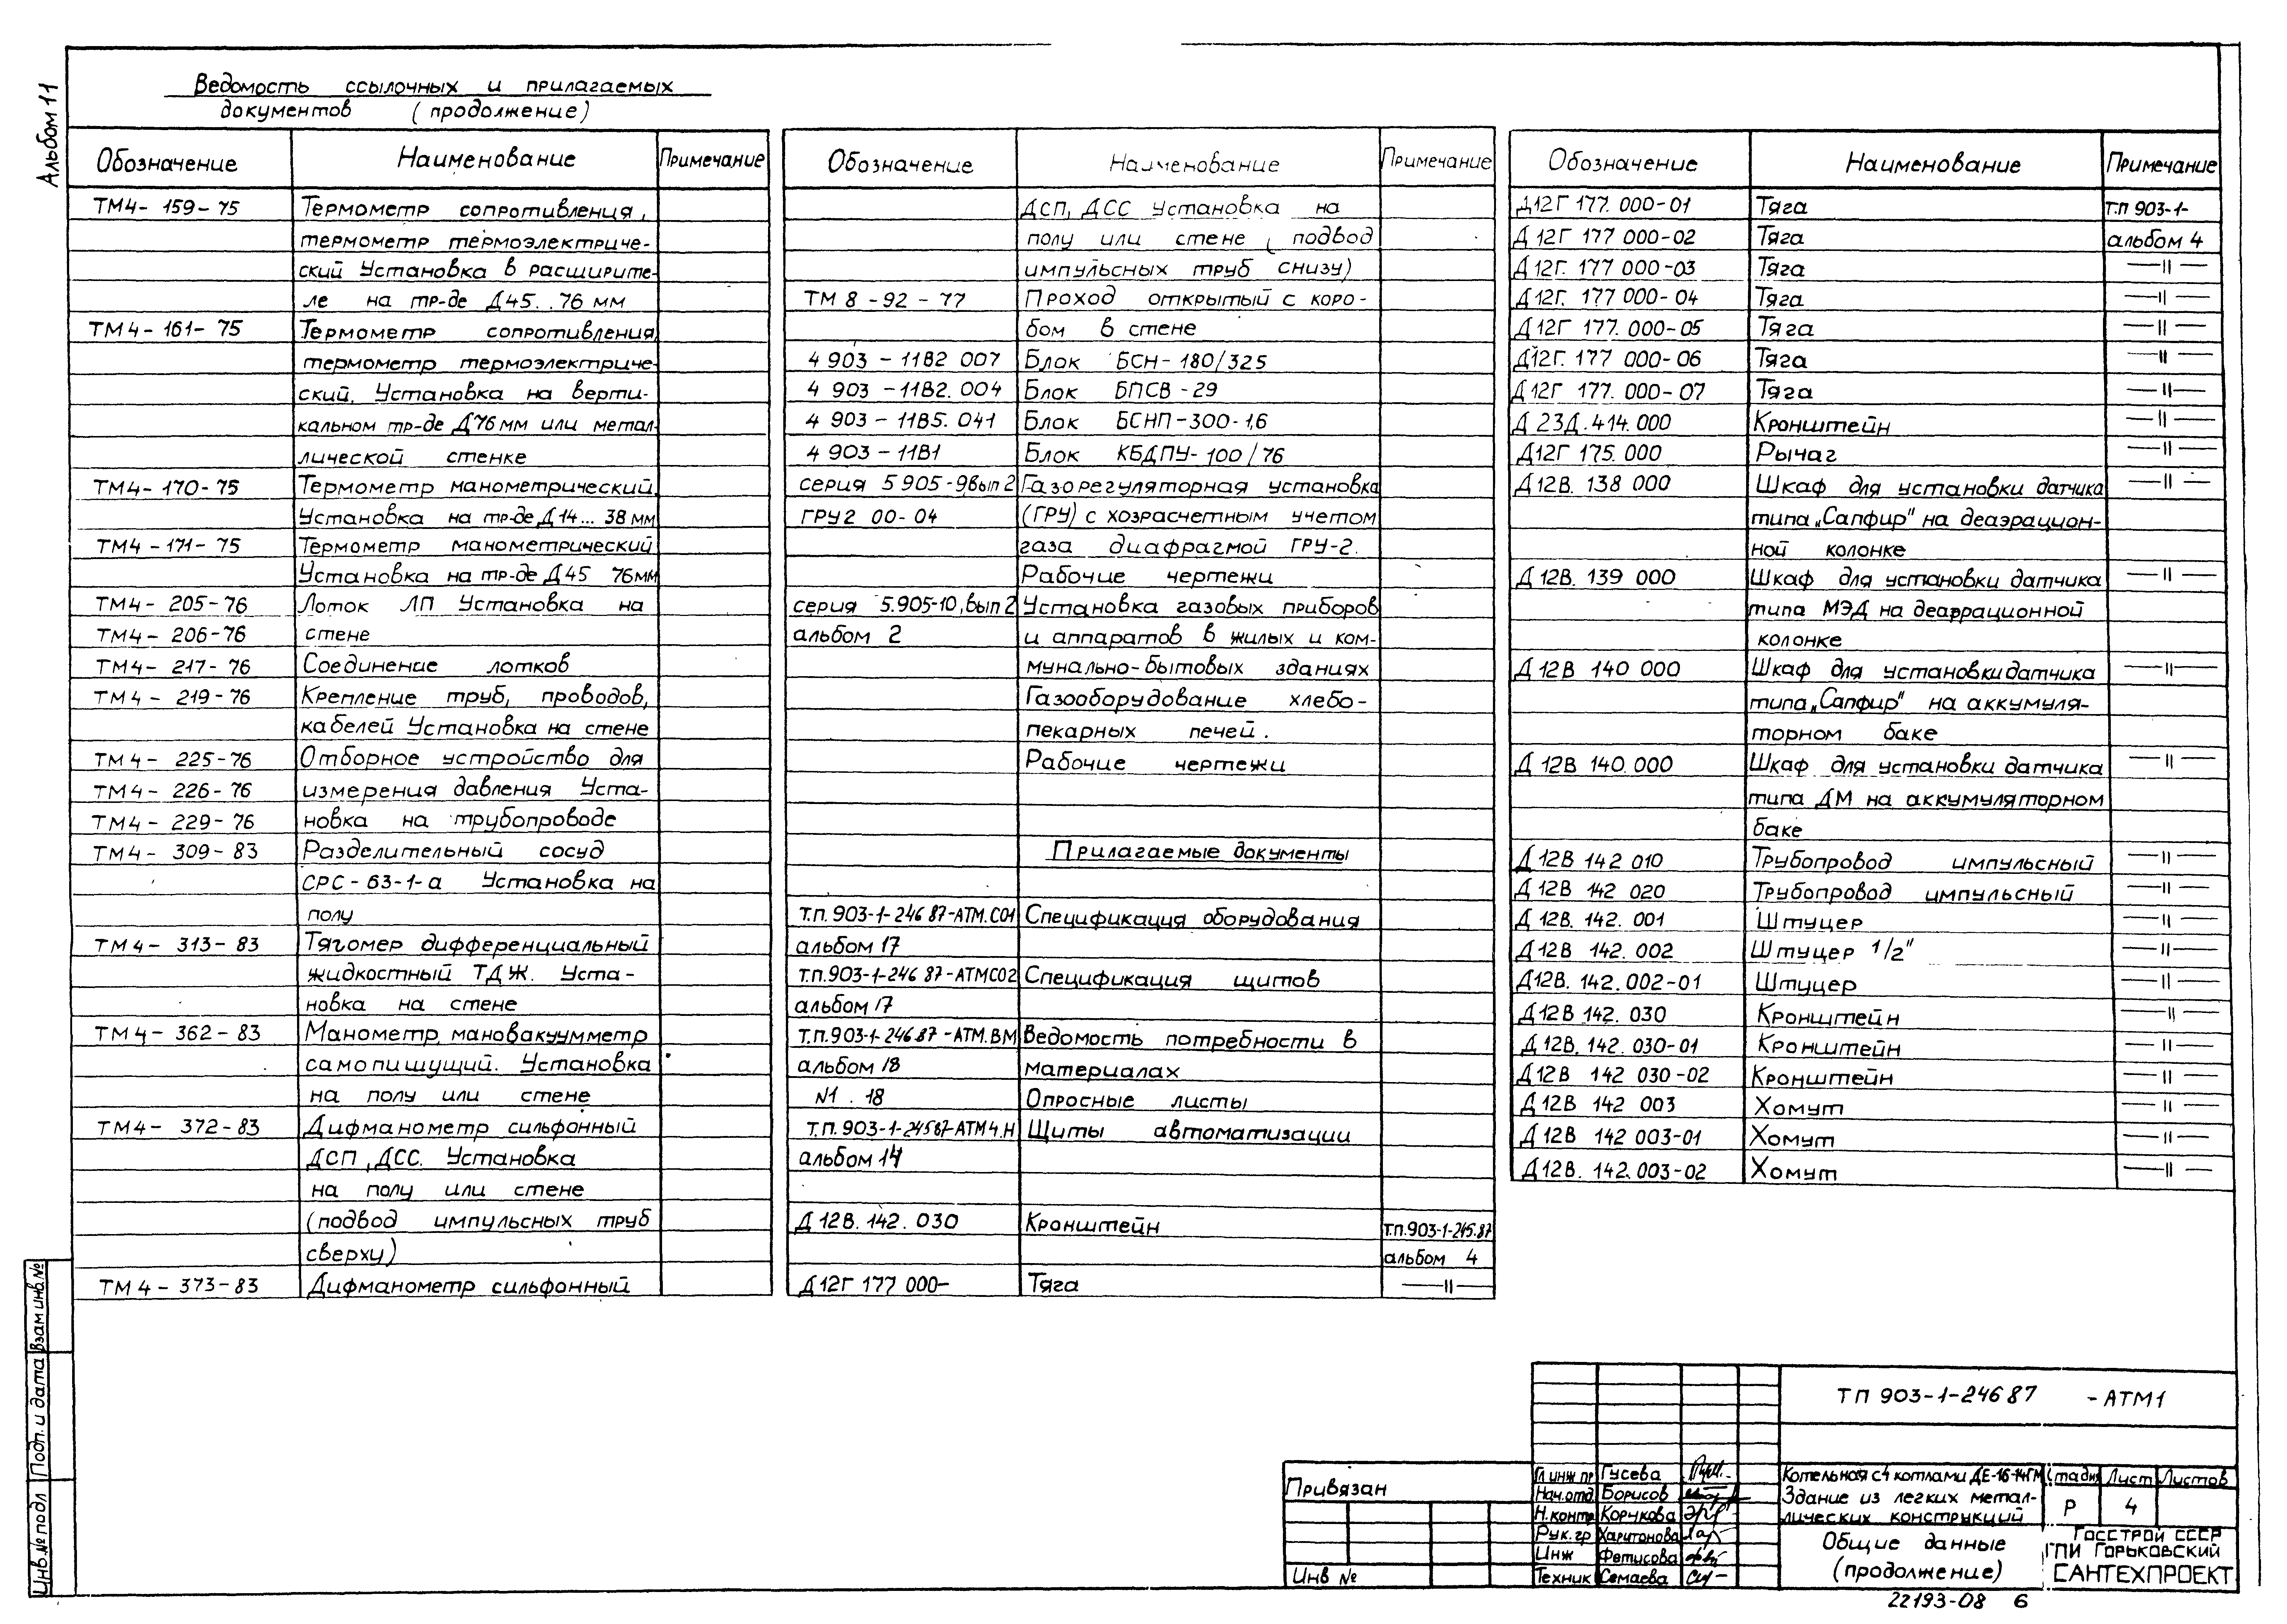 Альбом 11
Ведомость ссылочных и прилагаемых
документов (продолжение)
Обозначение Наименование Примечание
ТМ4-159-75 Термометр сопротивления,
термометр термоэлектриче-
ский Установка в расширите-
ле на тр-де Д45..76 мм
ТМ4-161-75 Термометр сопротивления,
термометр термоэлектриче-
ский. Установка на верти-
кальном тр-де Д76мм или метал-
лической стенке
ТМ4-170-75 Термометр манометрический.
Установка на тр-де Д14...38мм
ТМ4-171-75 Термометр манометрический
Установка на тр-де Д45 76мм
ТМ4-205-76 Лоток ЛП Установка на
ТМ4-206-76 стене
ТМ4-217-76 Соединение лотков
ТМ4-219-76 Крепление труб, проводов,
кабелей Установка на стене
ТМ4-225-76 Отборное устройство для
ТМ4-226-76 измерения давления Уста-
ТМ4-229-76 новка на трубопроводе
ТМ4-309-83 Разделительный сосуд
СРС-63-1-а Установка на
полу
ТМ4-313-83 Тягомер дифференциальный
жидкостный ТДЖ. Уста-
новка на стене
ТМ4-362-83 Манометр, мановакуумметр
самопишущий. Установка
на полу или стене
ТМ4-372-83 Дифманометр сильфонный
ДСП, ДСС. Установка
на полу или стене
(подвод импульсных труб
сверху)
ТМ4-373-83 Дифманометр сильфонный
Обозначение Наименование Примечание
ДСП, ДСС Установка на
полу или стене (подвод
импульсных труб снизу)
ТМ8-92-77 Проход открытый с коро-
бом в стене
4 903-11В2 007 Блок БСН-180/325
4 903-11В2.004 Блок БПСВ-29
4 903-11В5.041 Блок БСНП-300-1,6
4 903-11В1 Блок КБДПУ-100/76
серия 5 905-9,вып 2 Газорегуляторная установка
ГРУ2 00-04 (ГРУ) с хозрасчетным учетом
газа диафрагмой ГРУ-2.
Рабочие чертежи
серия 5.905-10, вып 2 Установка газовых приборов
альбом 2 и аппаратов в жилых и ком-
мунально-бытовых зданиях
Газооборудование хлебо-
пекарных печей.
Рабочие чертежи
Прилагаемые документы
Т.П. 903-1-246 87-АТМ.С01 Спецификация оборудования
альбом 17
Т.П. 903-1-246 87-АТМС02 Спецификация щитов
альбом 17
Т.П. 903-1-246 87-АТМ.ВМ Ведомость потребности в
альбом 18 материалах
N1 . 18 Опросные листы
Т.П. 903-1-24587-АТМ4.Н Щиты автоматизации
альбом 14
Д12В.142.030 Кронштейн Т.П.903-1-245.87
альбом 4
Д12Г 177 000- Тяга —"—
Обозначение Наименование Примечание
Д12Г 177.000-01 Тяга Т.П 903-1-
Д12Г 177 000-02 Тяга альбом 4
Д12Г. 177 000-03 Тяга —"—
Д12Г. 177 000-04 Тяга —"—
Д12Г 177.000-05 Тяга —"—
Д12Г. 177 000-06 Тяга —"—
Д12Г 177.000-07 Тяга —"—
Д 23Д.414.000 Кронштейн —"—
Д12Г 175.000 Рычаг —"—
Д12В. 138 000 Шкаф для установки датчика —"—
типа „Сапфир" на деаэрацион-
ной колонке
Д12В. 139 000 Шкаф для установки датчика —"—
типа МЭД на деаэрационной
колонке
Д12В 140 000 Шкаф для установки датчика —"—
типа „Сапфир" на аккумуля-
торном баке
Д12В 140.000 Шкаф для установки датчика —"—
типа ДМ на аккумуляторном
баке
Д12В 142 010 Трубопровод импульсный —"—
Д12В 142 020 Трубопровод импульсный —"—
Д12В. 142. 001 Штуцер —"—
Д12В 142. 002 Штуцер 1/2" —"—
Д12В. 142.002-01 Штуцер —"—
Д12В 142. 030 Кронштейн —"—
Д12В. 142. 030-01 Кронштейн —"—
Д12В 142 030-02 Кронштейн —"—
Д12В 142 003 Хомут —"—
Д12В 142 003-01 Хомут —"—
Д12В. 142.003-02 Хомут —"—
Взам инв.№
Подп. и дата
Инв.№ подл
Привязан
Инв №
ТП 903-1-246 87 -АТМ1
Гл инж пр Гусева
Нач.отд. Борисов
Н.контр Корчкова
Рук.гр Харитонова
Инж Фетисова
Техник Семаева
Котельная с 4 котлами ДЕ-16-14ГМ
Здание из легких метал-
лических конструкций
Стадия Лист Листов
Р 4
Общие данные
(продолжение)
Госстрой СССР
ГПИ Горьковский
САНТЕХПРОЕКТ
22193-08 6